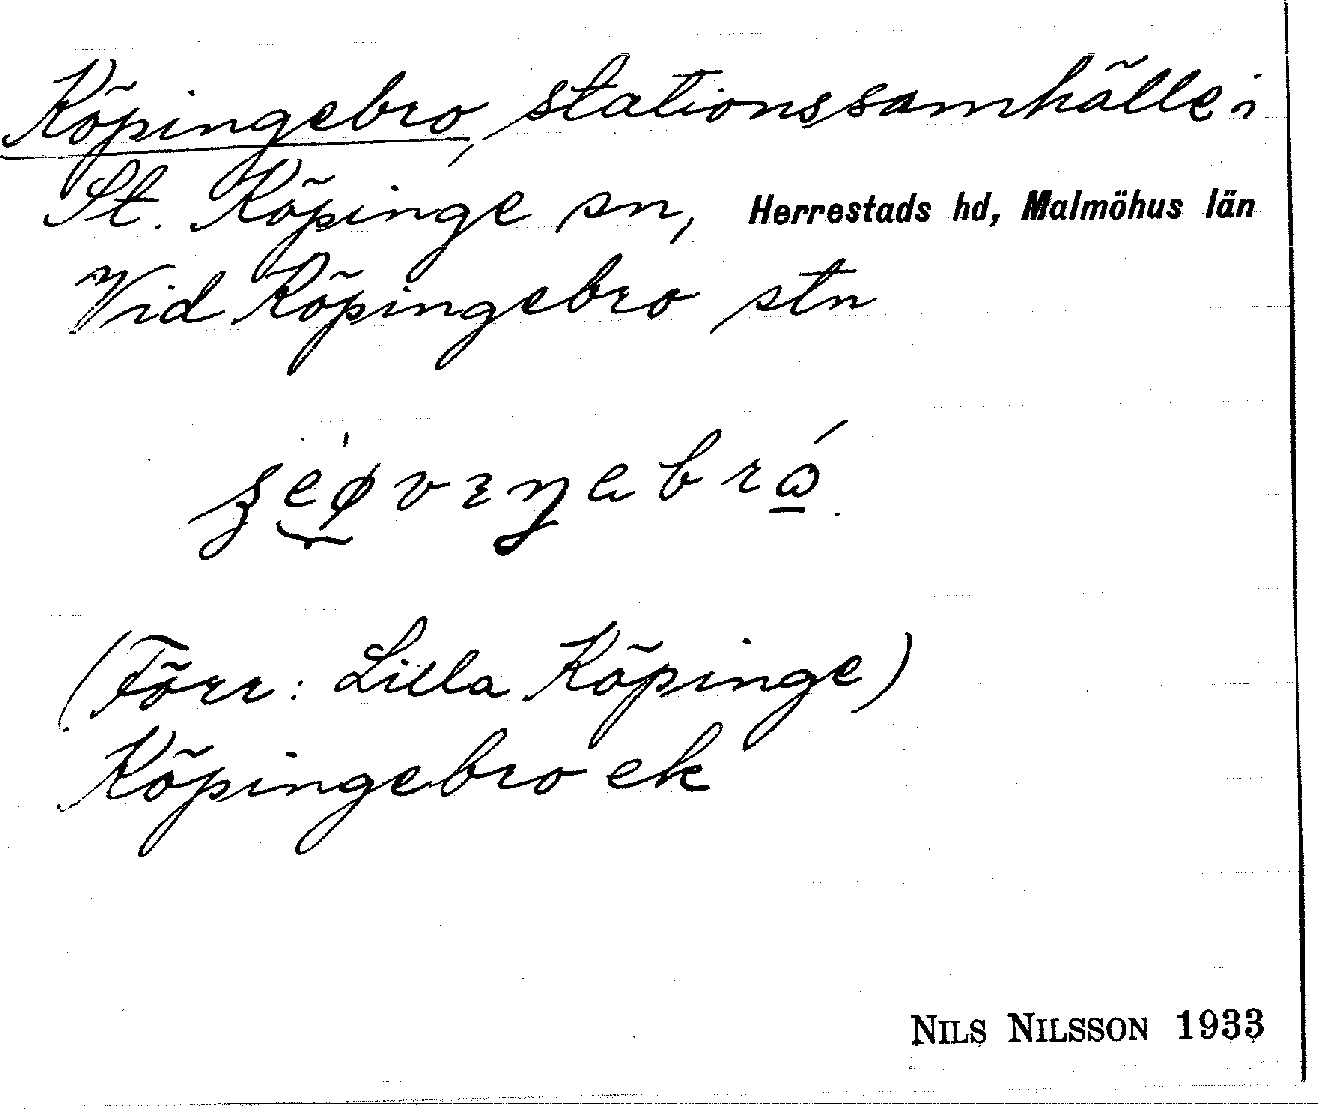 Köpingebro, stationssamhälle i
St. Köpinge sn, Herrestads hd, Malmöhus län
Vid Köpingebro stn
(Förr: Lilla Köpinge)
Köpingebro ek
NILS NILSSON 1933